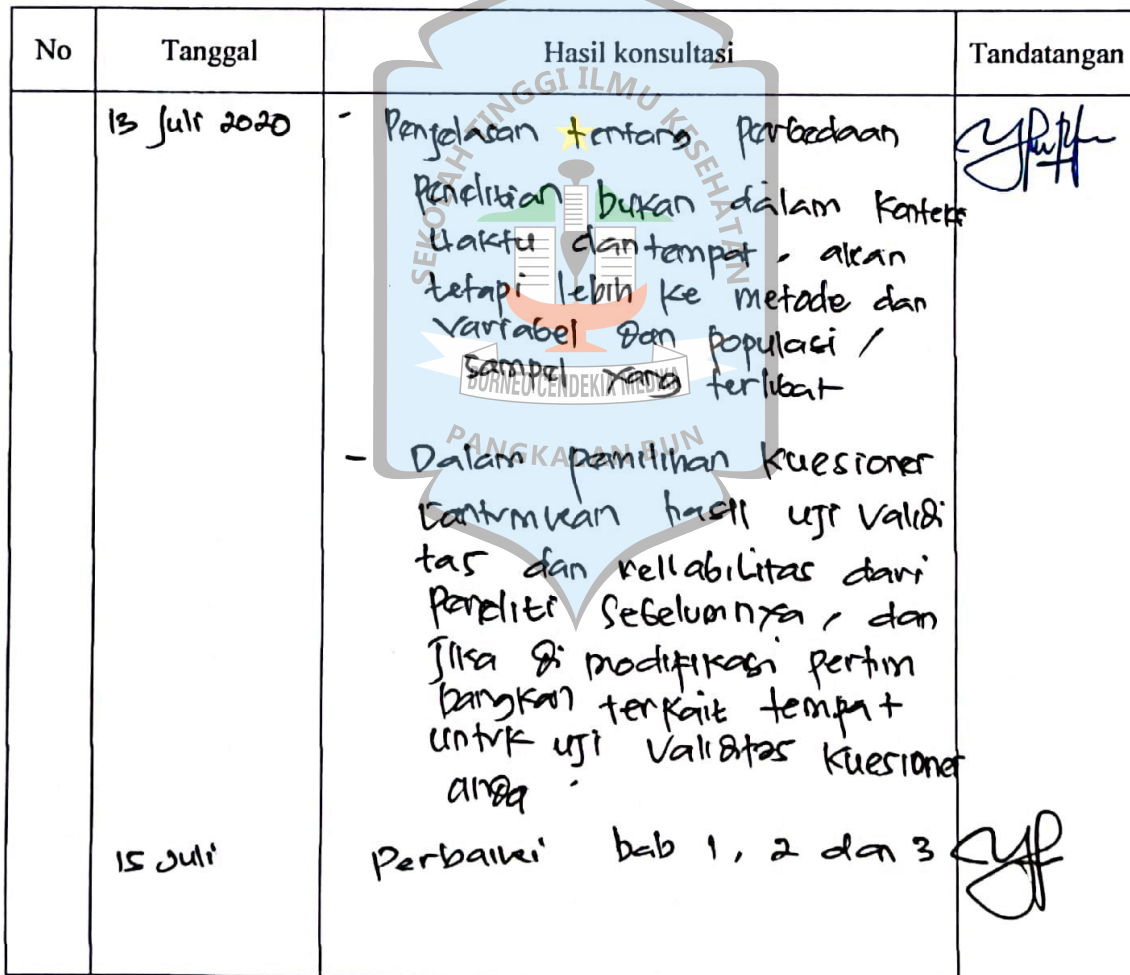 No Tanggal Hasil konsultasi Tandatangan
13 Juli 2020 - Penjelasan tentang perbedaan
penelitian bukan dalam konteks
waktu dan tempat, akan
tetapi lebih ke metode dan
variabel dan populasi /
sampel yang terlibat
- Dalam pemilihan kuesioner
cantumkan hasil uji validi
tas dan reliabilitas dari
peneliti sebelumnya, dan
jika di modifikasi pertim
bangkan terkait tempat
untuk uji validitas kuesioner
anda.
15 Juli Perbaiki bab 1, 2 dan 3
SEKOLAH TINGGI ILMU KESEHATAN
BORNEO CENDEKIA MEDIKA
PANGKALAN BUN